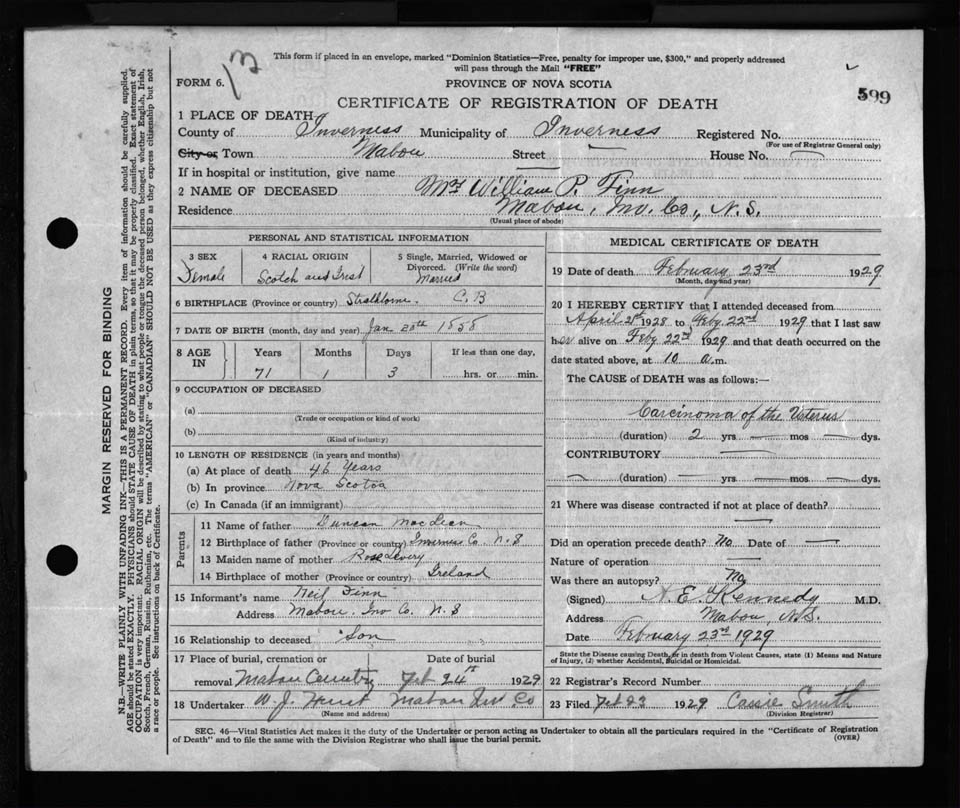 This form if placed in an envelope, marked "Dominion Statistics—Free, penalty for improper use, $300," and properly addressed
will pass through the Mail "FREE"
FORM 6.
PROVINCE OF NOVA SCOTIA
599
CERTIFICATE OF REGISTRATION OF DEATH
1 PLACE OF DEATH
County of Inverness Municipality of Inverness Registered No.
(For use of Registrar General only)
City or Town Mabou Street House No.
If in hospital or institution, give name
2 NAME OF DECEASED Mrs William P. Finn
Residence Mabou, Inv. Co., N.S.
(Usual place of abode)
PERSONAL AND STATISTICAL INFORMATION
3 SEX 4 RACIAL ORIGIN 5 Single, Married, Widowed or Divorced. (Write the word)
Female Scotch and Irish Married
6 BIRTHPLACE (Province or country) Strathlorne. C.B
7 DATE OF BIRTH (month, day and year) Jan 20th 1858
8 AGE IN Years Months Days If less than one day,
71 1 3 hrs. or min.
9 OCCUPATION OF DECEASED
(a)
(Trade or occupation or kind of work)
(b)
(Kind of industry)
10 LENGTH OF RESIDENCE (in years and months)
(a) At place of death 46 Years
(b) In province Nova Scotia
(c) In Canada (if an immigrant)
Parents
11 Name of father Duncan MacLean
12 Birthplace of father (Province or country) Inverness Co N.S
13 Maiden name of mother Rose
14 Birthplace of mother (Province or country) Ireland
15 Informant's name Neil Finn
Address Mabou. Inv Co. N.S
16 Relationship to deceased Son
17 Place of burial, cremation or Date of burial
removal Mabou Cemetry Feb 24th 1929
18 Undertaker W. J. Mabou Inv Co
(Name and address)
MEDICAL CERTIFICATE OF DEATH
19 Date of death February 23rd 1929
(Month, day and year)
20 I HEREBY CERTIFY that I attended deceased from
April 1928 to Feby 22nd 1929 that I last saw
her alive on Feby 22nd 1929 and that death occurred on the
date stated above, at 10 a.m.
The CAUSE of DEATH was as follows:—
Carcinoma of the Uterus
(duration) 2 yrs mos dys.
CONTRIBUTORY
(duration) yrs mos dys.
21 Where was disease contracted if not at place of death?
Did an operation precede death? No Date of
Nature of operation
Was there an autopsy? No
(Signed) A. E. Kennedy M.D.
Address Mabou, N.S.
Date February 23rd 1929
State the Disease causing Death, or in death from Violent Causes, state (1) Means and Nature
of Injury, (2) whether Accidental, Suicidal or Homicidal.
22 Registrar's Record Number
23 Filed Feb 23 1929 Cassie Smith
(Division Registrar)
SEC. 46—Vital Statistics Act makes it the duty of the Undertaker or person acting as Undertaker to obtain all the particulars required in the "Certificate of Registration
of Death" and to file the same with the Division Registrar who shall issue the burial permit.
(OVER)
MARGIN RESERVED FOR BINDING
N.B.—WRITE PLAINLY WITH UNFADING INK—THIS IS A PERMANENT RECORD. Every item of information should be carefully supplied.
AGE should be stated EXACTLY. PHYSICIANS should STATE CAUSE OF DEATH in plain terms, so that it may be properly classified. Exact statement of
OCCUPATION is very important. RACIAL ORIGIN will be described by stating to what people or tongue the deceased person belonged, whether English, Irish,
Scotch, French, German, Russian, Ruthenian, etc. The terms "AMERICAN" or "CANADIAN" SHOULD NOT BE USED as they express citizenship but not
a race or people. See instructions on back of Certificate.